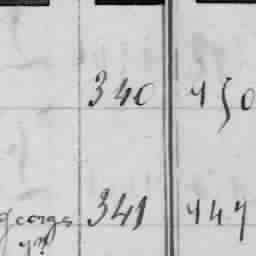 340 450
George 341 447